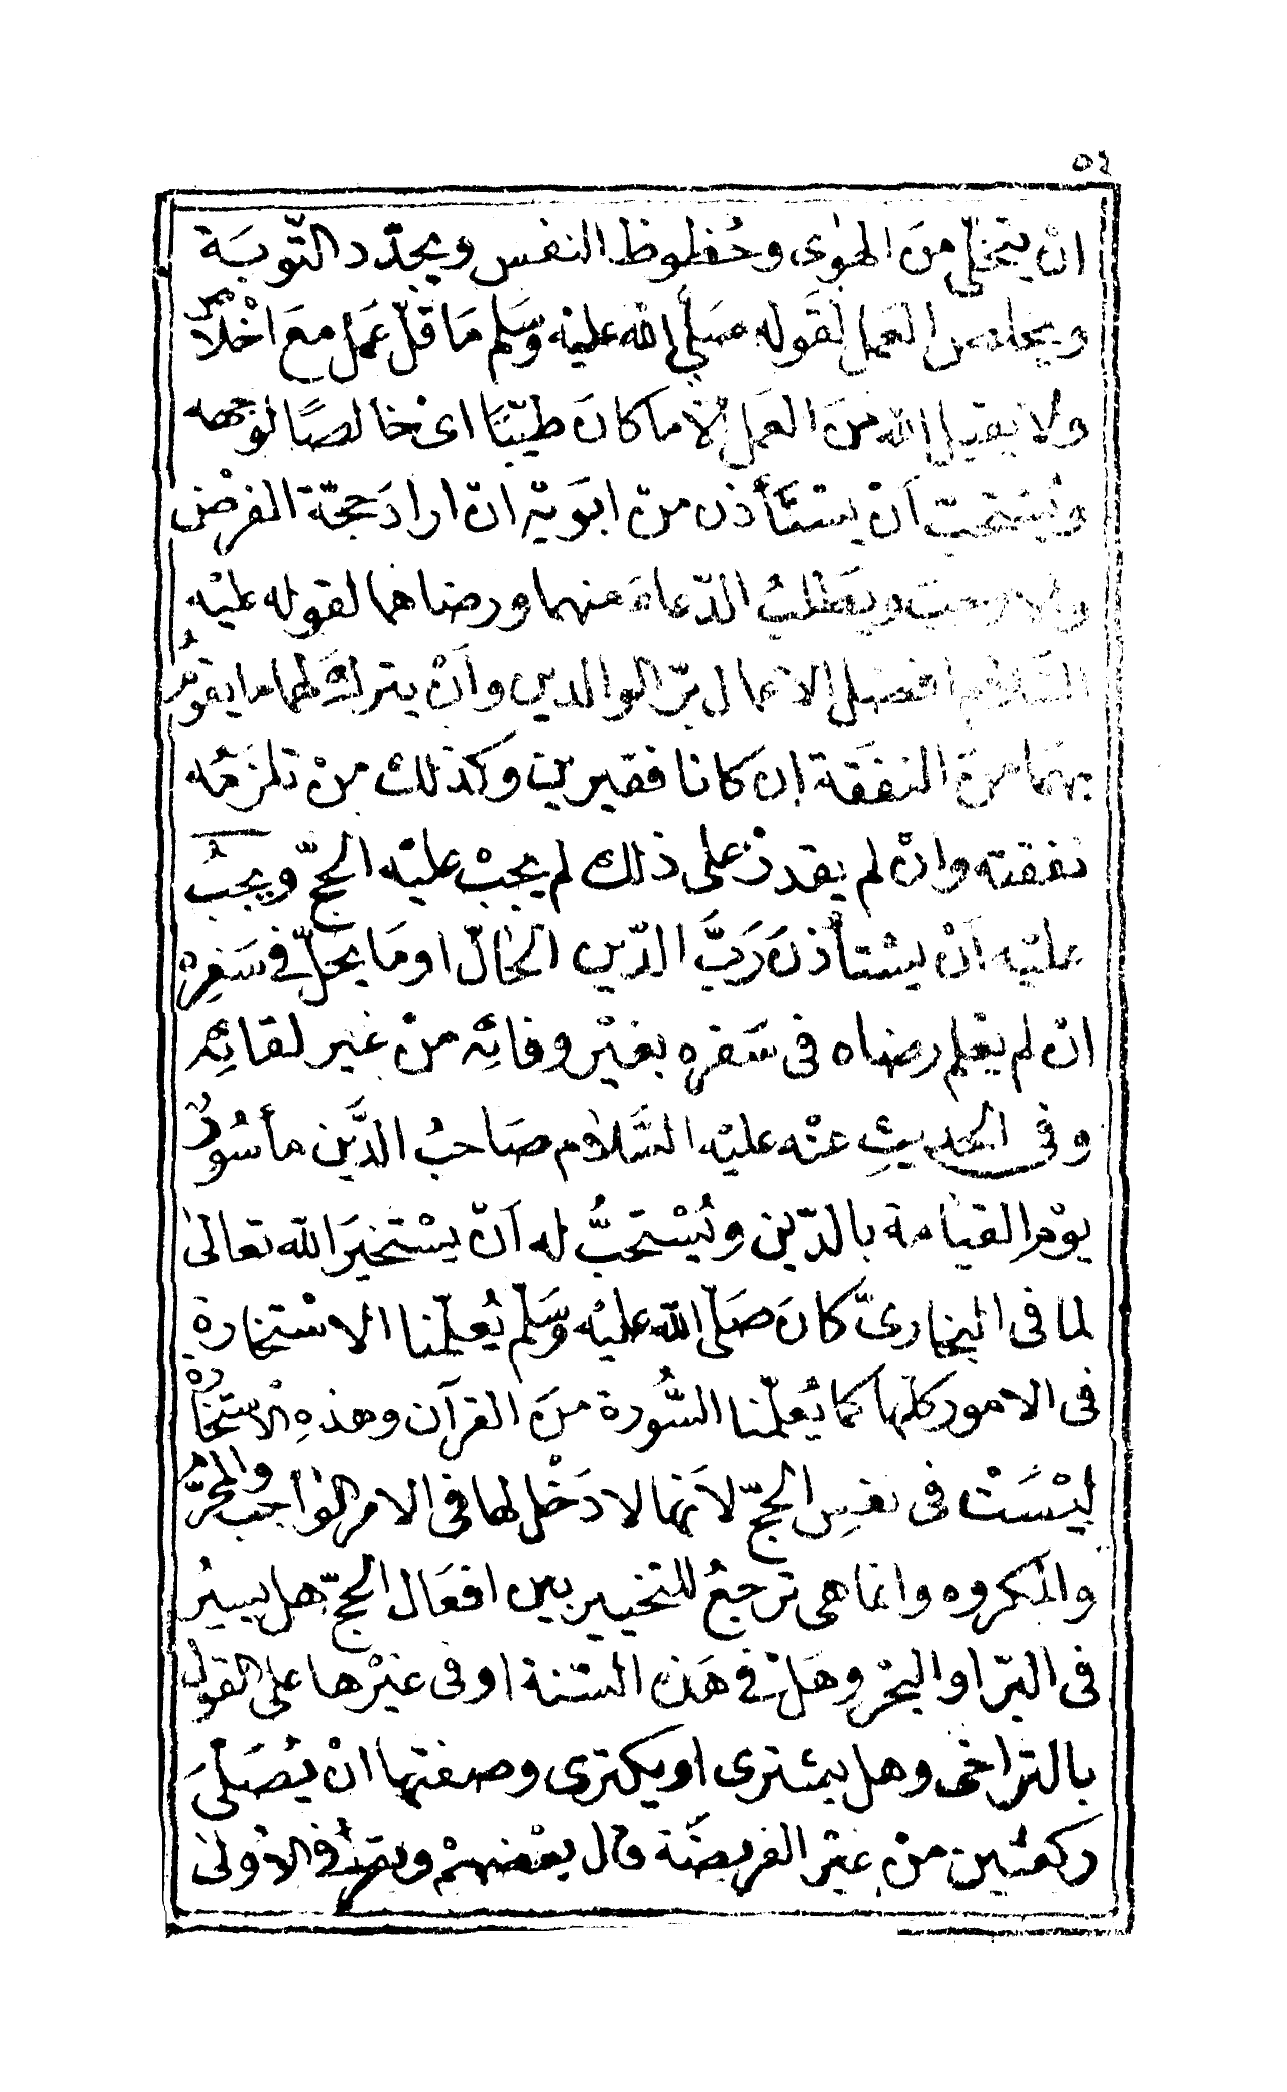 ٥٤
انْ يتخلّى منَ الهوٰى وحُظوظ النفس ويجدّد التّوبَة
ويخلص العمل لقَوله صَلّى الله عليْه وسَلم مَا قلّ عَمل معَ اخْلاص
ولا يقبل الله منَ العَمل الّا ما كانَ طيّبًا اىْ خالصًا لوجهه
ويُستحبّ اَنْ يستَأذن منْ ابوَيْه انْ ارادَ حجّة الفرْض
والا وجبَ ويَطلبُ الدّعاءَ منهما ورضاهما لقوله عليْه
السَلام افضل الاعمال برّ الوالدين واَنْ يتركَ لهما ما يقومُ
بهمَا منَ النفقَة إن كانا فقيرين وكذلكَ منْ تلزمُه
نفقته وانْ لم يقدرْ على ذلك لم يجبْ عليْه الحجّ ويجبُ
عليْه اَنْ يسْتأذنَ رَبَّ الدّين الحَالّ او مَا يحلّ فى سَفرِه
انْ لم يعْلم رضاه فى سَفره بغيْر وفائِه منْ غيْر لقائِه
وفى الحديثِ عنْه عليْه السَّلام صَاحبُ الدَّين مأسُورٌ
يوْم القيامة بالدّين ويُسْتحبُّ له اَنْ يسْتخيرَ الله تعالىٰ
لما فى البخارىّ كانَ صَلّى الله عليْه وسَلّم يُعلّمنا الاسْتخارة
فى الامور كلّها كما يُعلّمنا السُّورة منَ القرآن وهذهِ الاستخارة
ليْسَتْ فى نفسِ الحجّ لاَنها لا دَخْل لها فى الامر الواجب والمحرّم
والمَكروه وانما هى ترجعُ للتخيير بين افعَال الحجّ هل يسيرُ
فى البرّ او البحْر وهَلْ فى هَذه السّنة او فى غيْرها على القول
بالتراخى وهل يشترى او يكترى وصفتها انْ يُصَلّىَ
ركعتين منْ غيْر الفريضَة قال بعْضهمْ ويقرأُ فى الاوْلىٰ